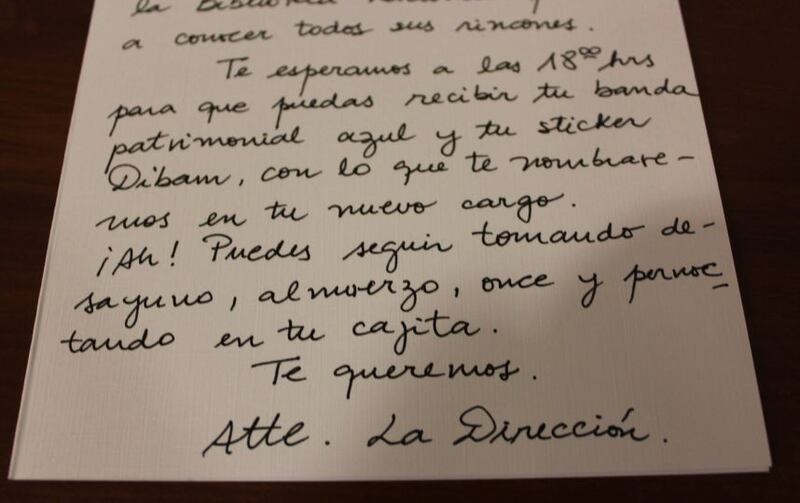 la Biblioteca
a conocer todos sus rincones.
Te esperamos a las 18⁰⁰ hrs
para que puedas recibir tu banda
patrimonial azul y tu sticker
Dibam, con lo que te nombrare-
mos en tu nuevo cargo.
¡Ah! Puedes seguir tomando de-
sayuno, almuerzo, once y pernoc-
tando en tu cajita.
Te queremos.
Atte. La Dirección.